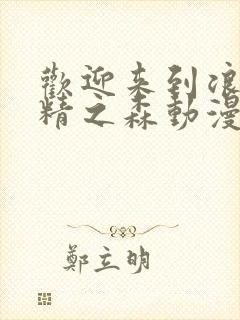 歡迎来到浪
精之森動漫
鄭立明